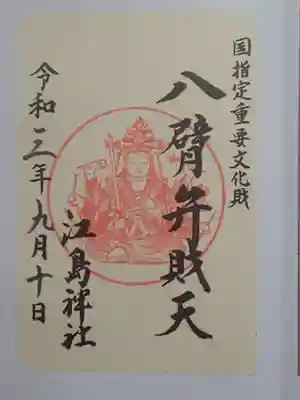 国指定重要文化財
八臂弁財天
江島神社
令和三年九月十日